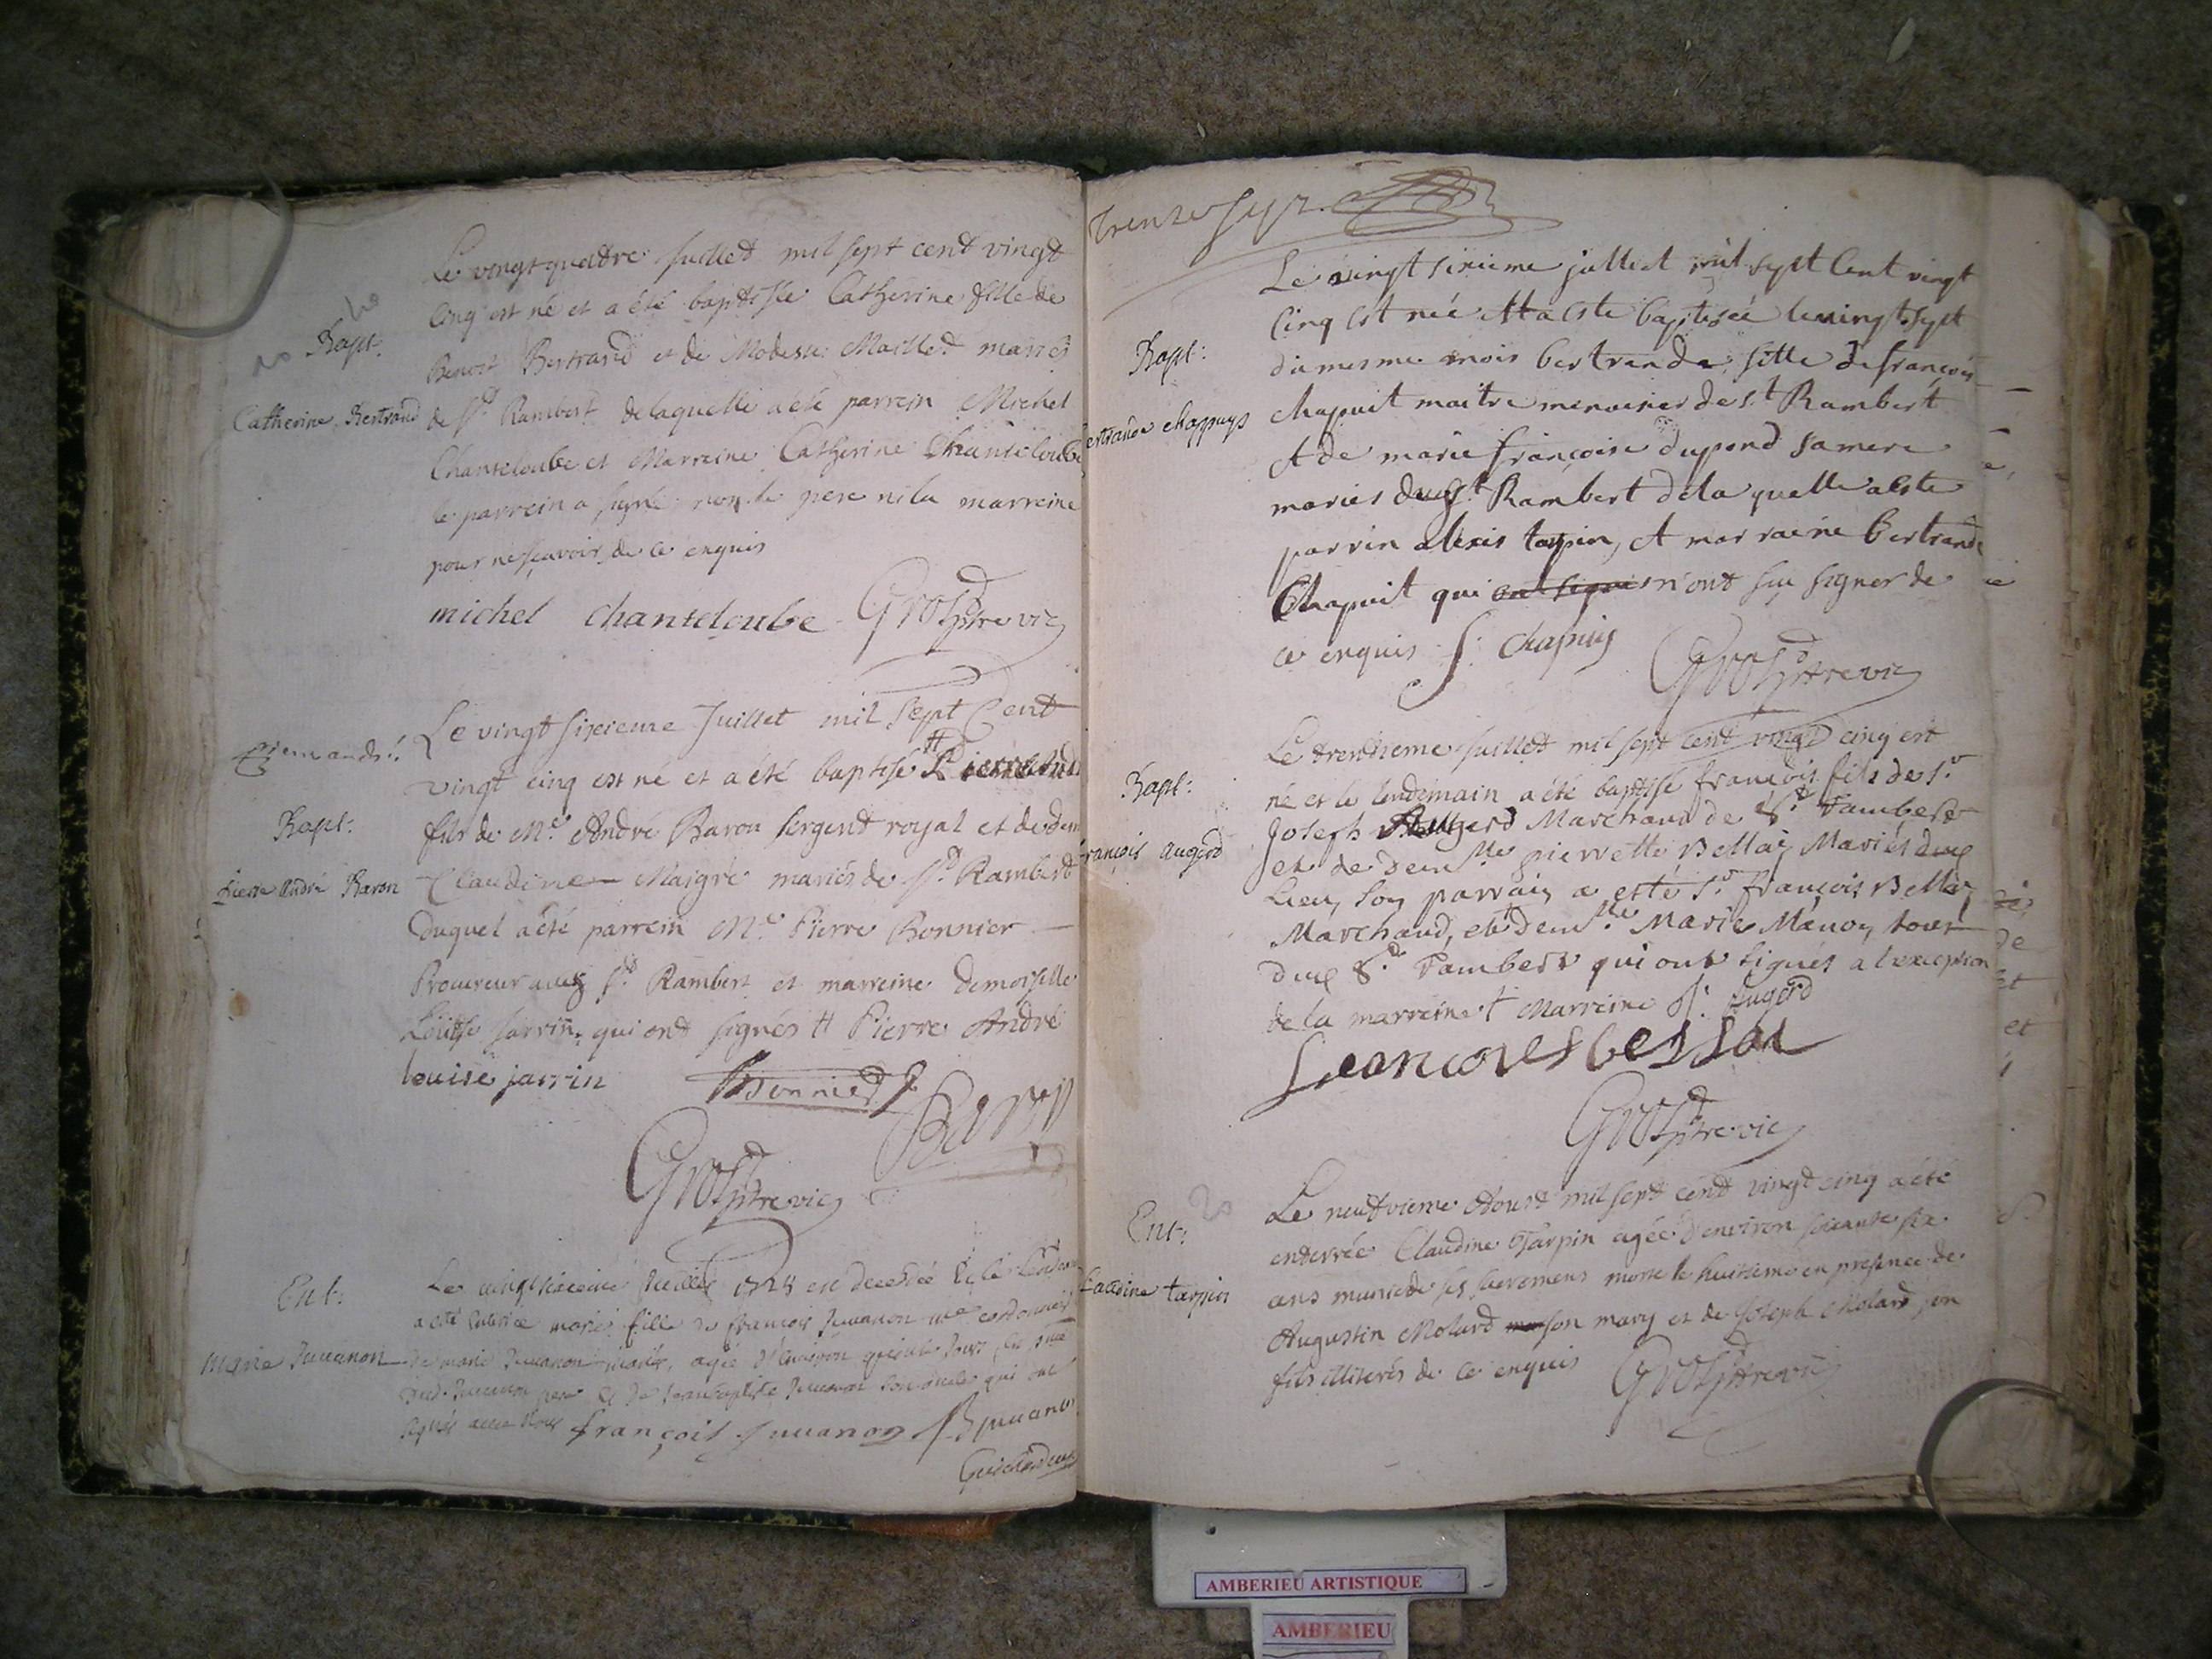 Le vingt quattre Juillet mil sept cent vingt
cinq est né et a été baptisée Catherine fille de
Bapt:
Benoit Bertrand et de Modeste Maillet mariés
Catherine Bertrand
de St Rambert de laquelle a été parrein Michel
Chanteloube et Marreine Catherine Chanteloube
le parrein a signé non le pere ni la marreine
pour ne sçavoir de ce enquis
michel chanteloube Gros ptre vic
Le vingt sixieme Juillet mil sept Cent
vingt cinq est né et a été baptisé #
Bapt:
fils de Me André Baron sergent royal et de dem
Pierre André Baron
Claudine Maigre mariés de St Rambert
duquel a été parrein Me Pierre Bonnier
Procureur aud St Rambert et marreine demoiselle
Louise Jarrin qui ont signés # Pierre André
louise jarrin Bonnier Baron
Gros ptre vic
Ent:
Le vingt sixieme Juillet 1725 est decedée et le lendem
a été enterrée marie fille de francois Juvanon me cordonnier
Marie Juvanon
de marie Juvanon mariés, agée d'environ jours en pnce
dud. Juvanon pere et de Jean baptiste Juvanon son oncle qui ont
signés avec Nous françois Juvanon JB Juvano
trente sept.
Le vingt sixieme jullet mil sept Cent vingt
Cinq Est neé Et a esté baptiseé le vingt sept
Bapt:
du mesme mois bertrande fille de françois
chapuit maitre menuisier de St Rambert
ertrande chappuys
Et de marie françoise dupond sa mere
maries dud St Rambert de la quelle a este
parrin alexis tarpin, Et marraine bertrande
Chapuit qui ont signé n'ont su signer de
ce enquis f: chapuis Gros ptre vic
Le trentieme Juillet mil sept cent vingt cinq est
né et le lendemain a été baptisé françois fils de Sr
Bapt:
Joseph Augerd Marchand de St Rambert
rançois augerd
et de demlle pierrette Bellay Mariés dud
Lieu, son parrain a esté Sr françois Bellay
Marchand, et demlle Marie Manoy tous
dud St Rambert qui ont signés a l'exception
de la marreine † Marreine J: Augerd
Gros ptre vic
Ent:
Le neufvieme Aoust mil sept cent vingt cinq a été
enterrée Claudine Tarpin agée d'environ soixante six
laudine tarpin
ans munie de ses sacremens morte le huitieme en presence de
Augustin Molard son mary et de Joseph Molard son
fils illiterés de ce enquis Gros ptre vic
AMBERIEU ARTISTIQUE
AMBERIEU